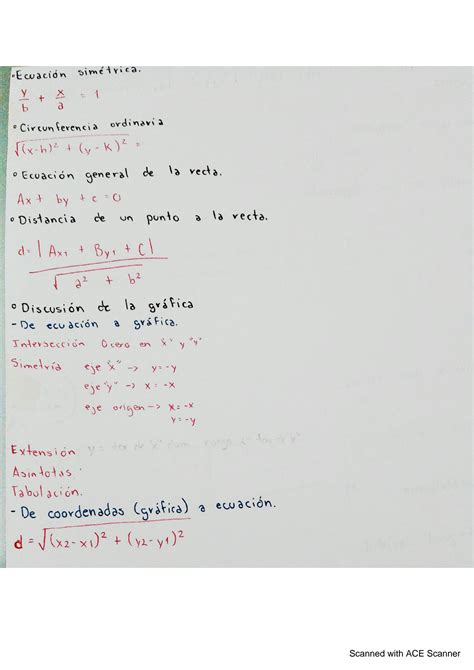 •Ecuación simétrica.
y/b + x/a = 1
• Circunferencia ordinaria
√(x-h)² + (y-K)² =
• Ecuación general de la recta.
Ax + by + c = 0
• Distancia de un punto a la recta.
d= |Ax1 + By1 + C| / √a² + b²
• Discusión de la gráfica
- De ecuación a gráfica.
Intersección 0 cero en "x" y "y"
Simetría eje "x" -> y=-y
eje "y" -> x = -x
eje origen -> x = -x
y = -y
Extensión
Asintotas
Tabulación.
- De coordenadas (gráfica) a ecuación.
d = √(x2-x1)² + (y2-y1)²
Scanned with ACE Scanner